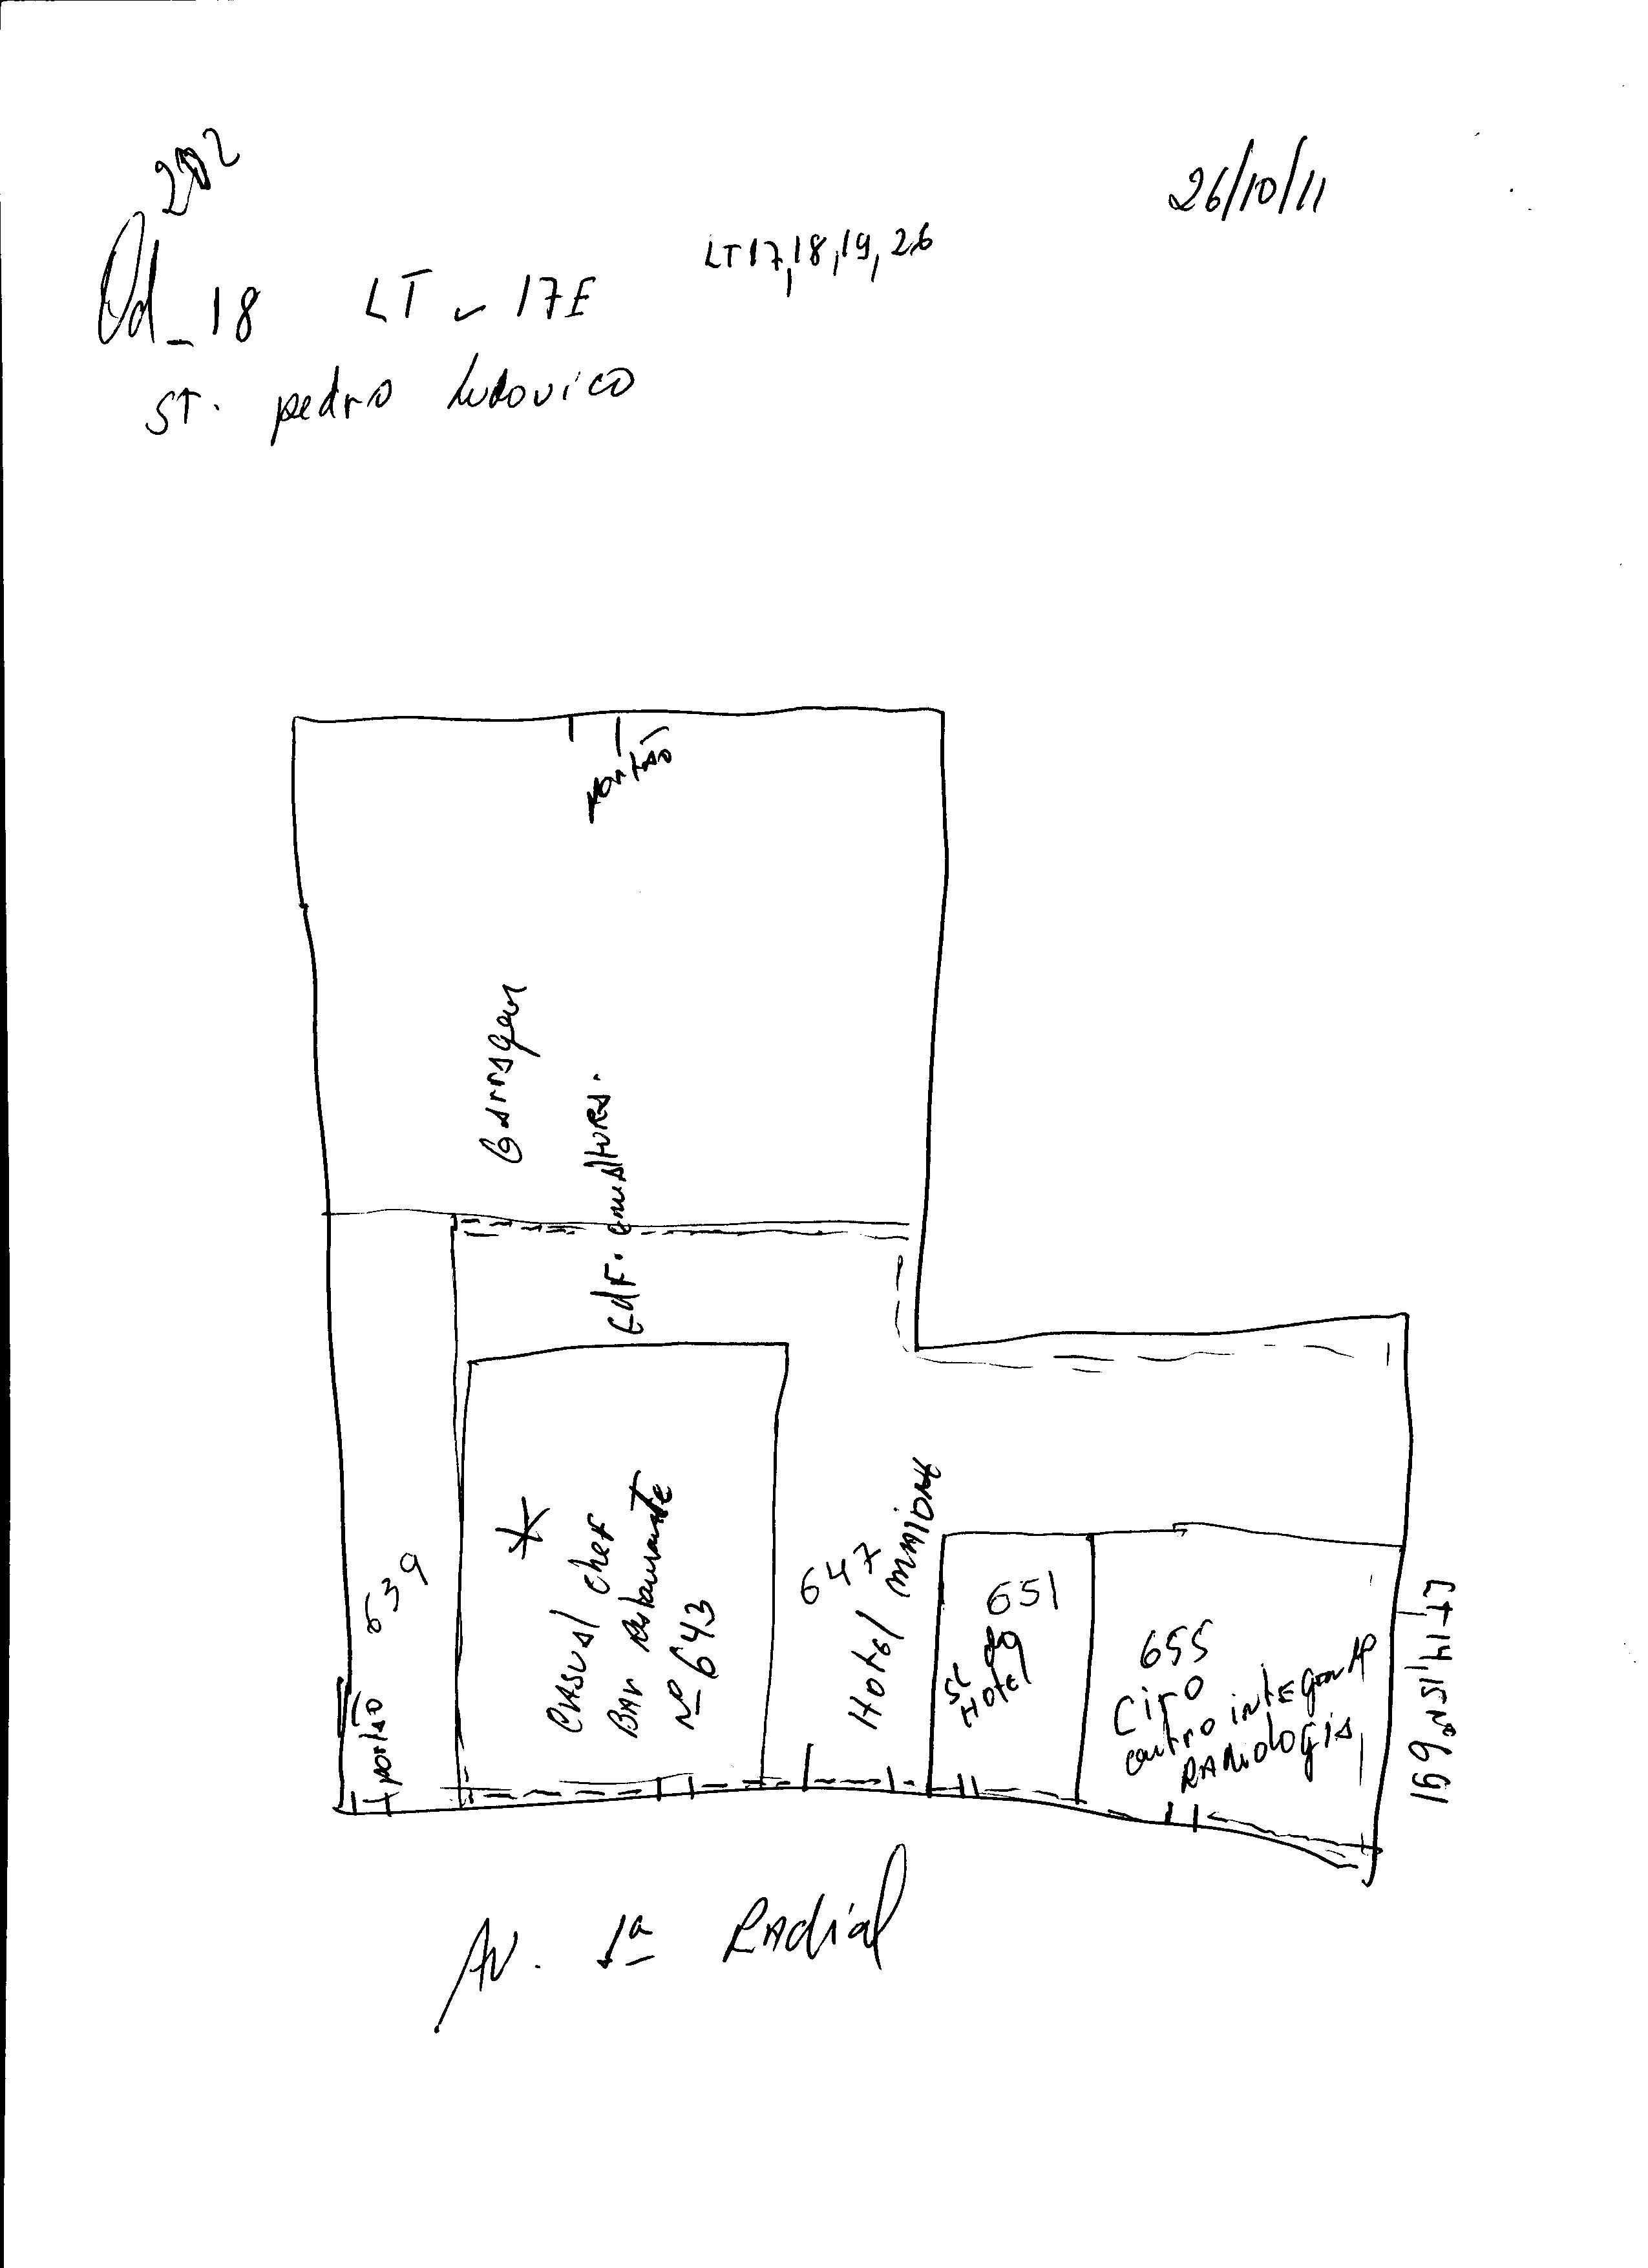 26/10/11
LT 17,18,19,26
Qd_18 LT - 17E
ST. pedro Ludovico
portão
Garragem
Edf. em altura.
639
portão
Casual Chef
Bar restaurante
Nº 643
647
Hotel
651
SL do
Hotel
655
Ciro
centro integonAP
RADiologia
LT-14,15 Nº 691
AV. 1ª RAdial